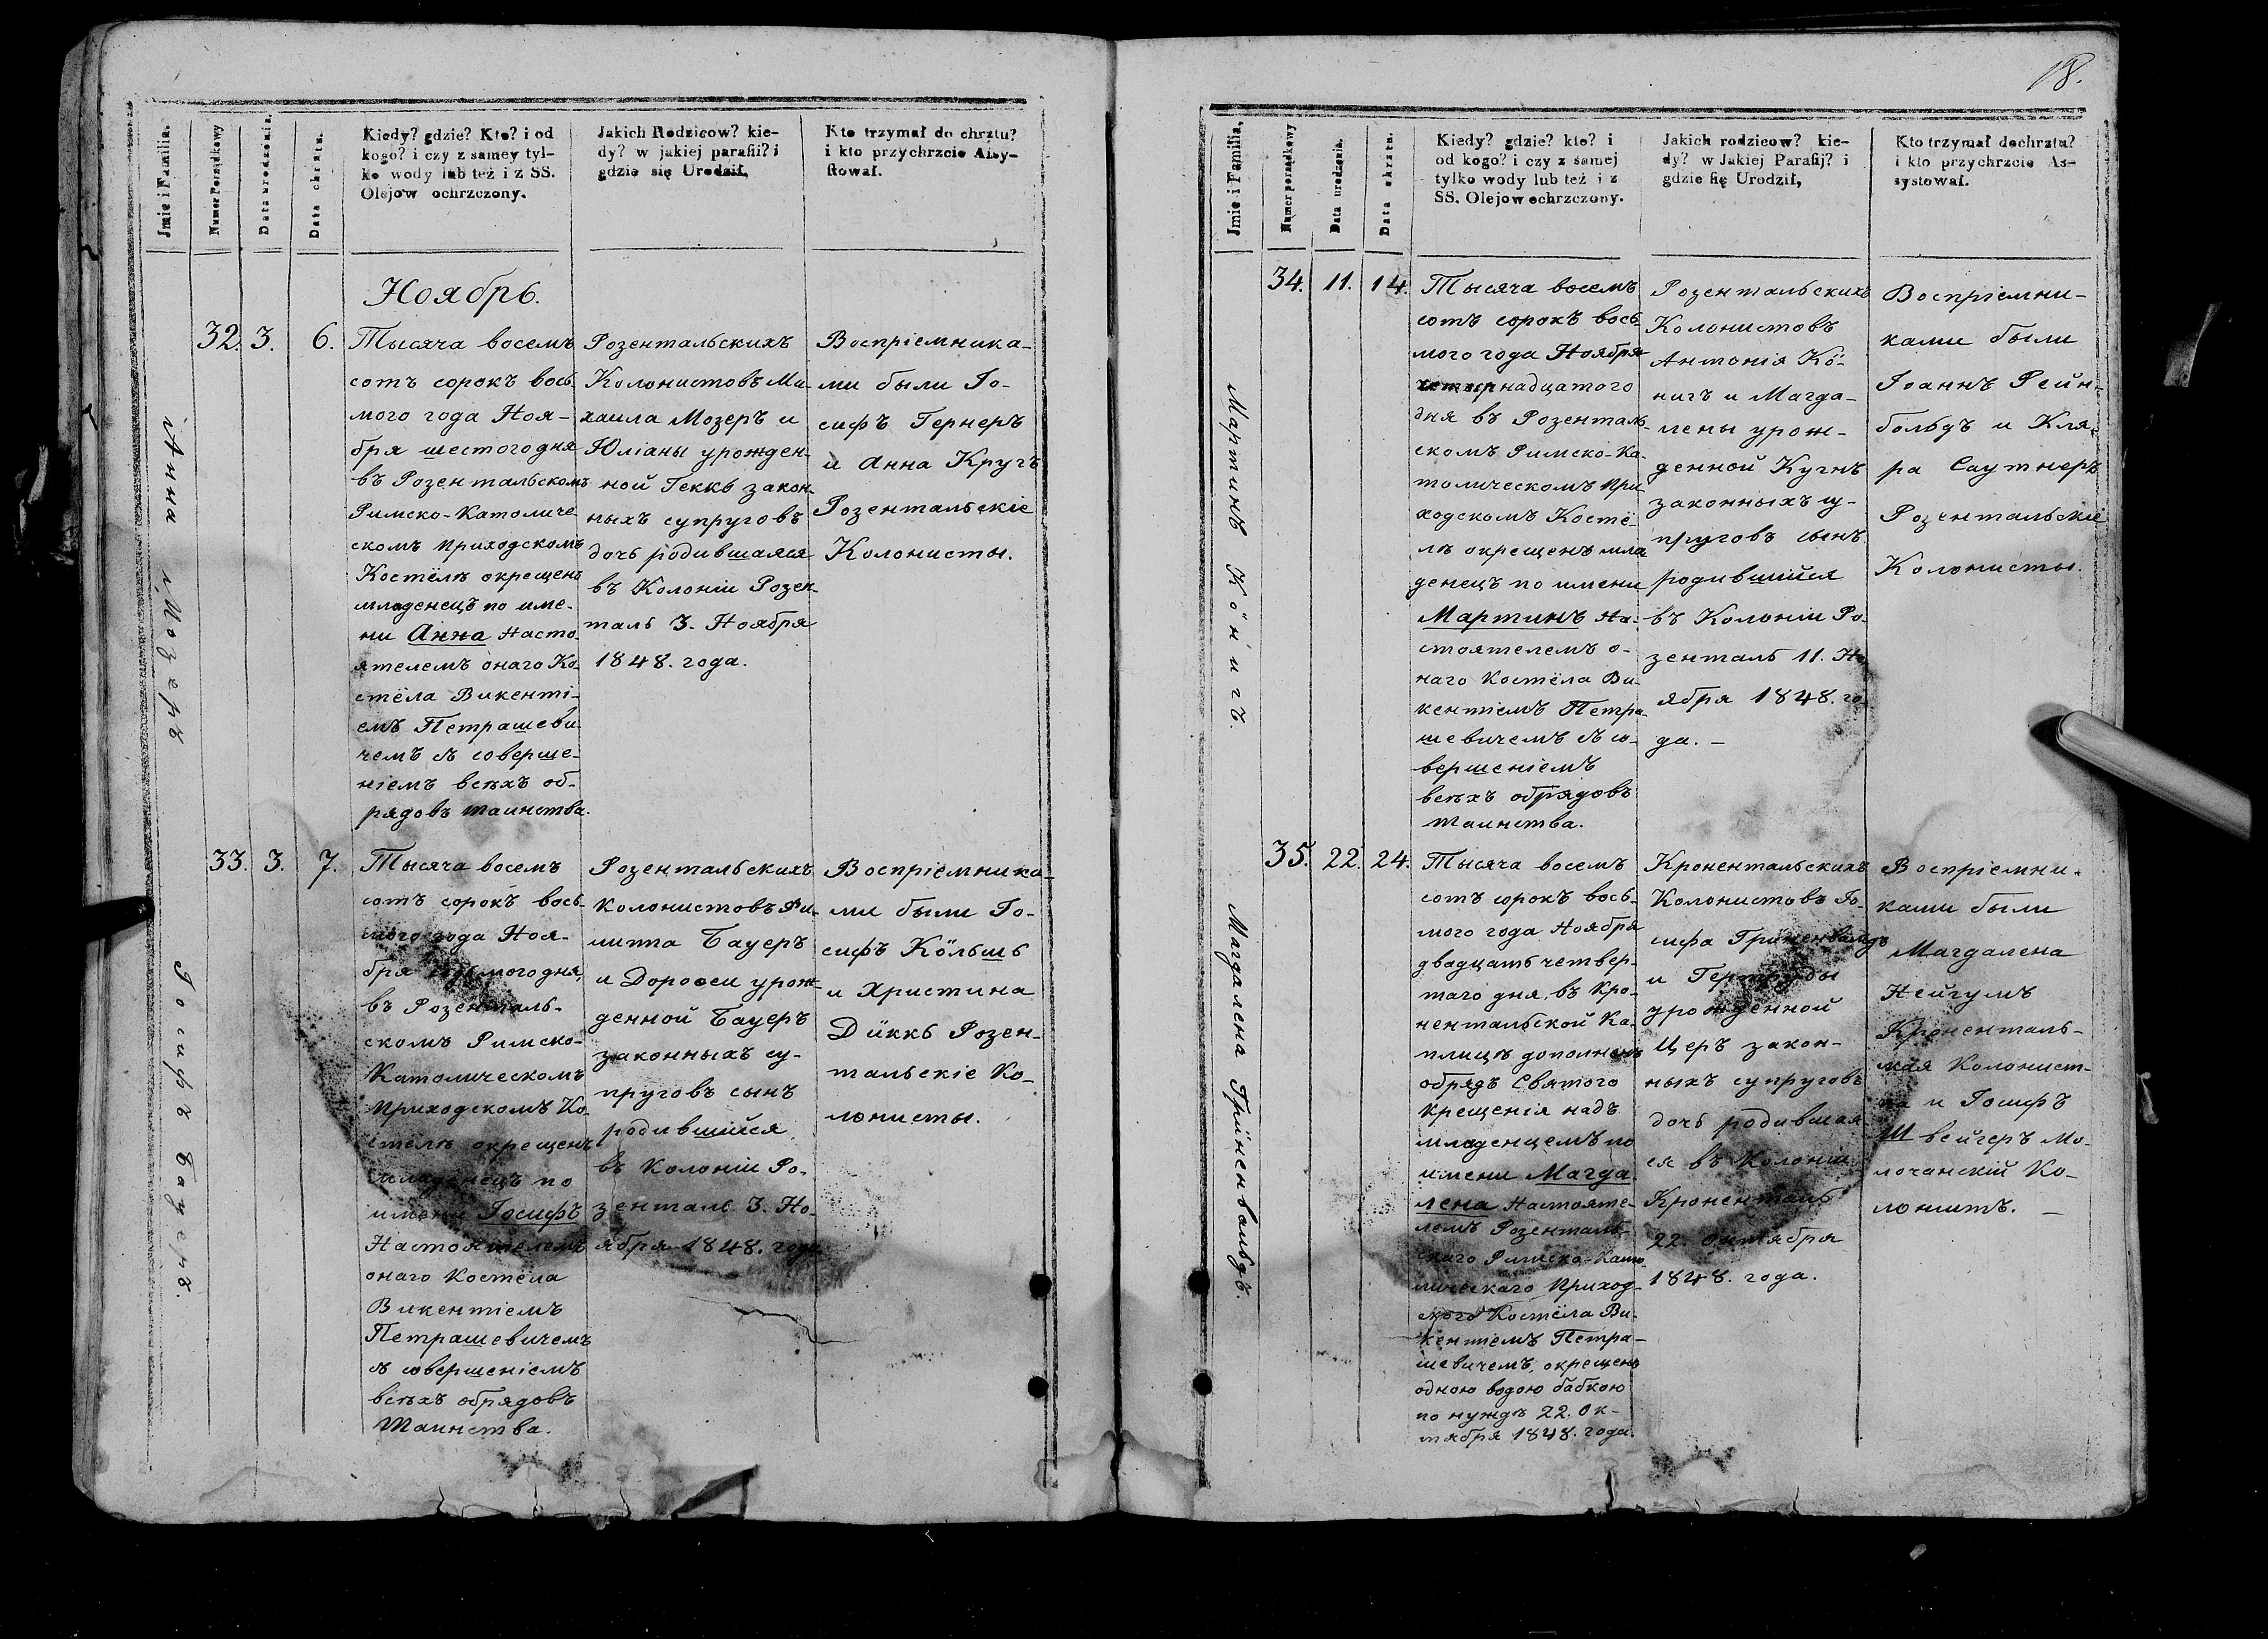 Jmie i Familia.
Numer Porządkowy
Data urodzenia.
Data chrztu.
Kiedy? gdzie? Kto? i od
kogo? i czy z samey tyl-
ko wody lub też i z SS.
Olejow ochrzczony.
Jakich Rodzicow? kie-
dy? w jakiej parafii? i
gdzie się Urodził,
Kto trzymał do chrztu?
i kto przychrzcie Assy-
stował.
Ноябрь.
Анна Мозеръ
32. 3. 6.
Тысяча восемъ
сотъ сорокъ вось-
мого года Ноя-
бря шестого дня
въ Розентальскомъ
Римско-Католиче-
скомъ Приходскомъ
Костёлѣ окрещенъ
младенецъ по име-
ни Анна Насто-
ятелемъ онаго Ко-
стёла Викенті-
емъ Петрашеви-
чемъ съ соверше-
ніемъ всѣхъ об-
рядовъ таинства.
Розентальскихъ
Колонистовъ Ми-
хаила Мозеръ и
Юліаны урожден-
ной Геккъ закон-
ныхъ супруговъ
дочь родившаяся
въ Колоніи Розен-
таль 3. Ноября
1848. года.
Воспріемника-
ми были Іо-
сифъ Гернеръ
и Анна Кругъ
Розентальскіе
Колонисты.
Іосифъ Бауеръ.
33. 3. 7.
Тысяча восемъ
сотъ сорокъ вось-
мого года Ноя-
бря седьмого дня,
въ Розенталь-
скомъ Римско-
Католическомъ
Приходскомъ Ко-
стёлѣ окрещенъ
младенецъ по
имени Іосифъ
Настоятелемъ
онаго Костёла
Викентіемъ
Петрашевичемъ
съ совершеніемъ
всѣхъ обрядовъ
Таинства.
Розентальскихъ
Колонистовъ Фи-
липпа Бауеръ
и Дороѳеи урож-
денной Бауеръ
законныхъ су-
пруговъ сынъ
родившійся
въ Колоніи Ро-
зенталь 3. Но-
ября 1848. года
Воспріемника-
ми были Іо-
сифъ Кöльшъ
и Христина
Дüккъ Розен-
тальскіе Ко-
лонисты.
18.
Jmie i Familia,
Numer porządkowy
Data urodzenia.
Data chrztu.
Kiedy? gdzie? kto? i
od kogo? i czy z samej
tylko wody lub też i z
SS. Olejow ochrzczony.
Jakich rodzicow? kie-
dy? w Jakiej Parafij? i
gdzie się Urodził,
Kto trzymał dochrztu?
i kto przychrzcie As-
systował.
Мартинъ Кöнигъ.
34. 11. 14.
Тысяча восемъ
сотъ сорокъ вось-
мого года Ноября
четырнадцатого
дня въ Розенталь-
скомъ Римско-Ка-
толическомъ При-
ходскомъ Костё-
лѣ окрещенъ мла-
денецъ по имени
Мартинъ На-
стоятелемъ о-
наго Костёла Ви-
кентіемъ Петра-
шевичемъ съ со-
вершеніемъ
всѣхъ обрядовъ
Таинства.
Розентальскихъ
Колонистовъ
Антонія Кö-
нигъ и Магда-
лены урож-
денной Кугнъ
законныхъ су-
пруговъ сынъ
родившійся
въ Колоніи Ро-
зенталь 11. Но-
ября 1848. го-
да. —
Воспріемни-
ками были
Іоаннъ Рейн-
больдъ и Кля-
ра Саутнеръ
Розентальскіе
Колонисты.
Магдалена Грüненвальдъ.
35. 22. 24.
Тысяча восемъ
сотъ сорокъ вось-
мого года Ноября
двадцать четвер-
таго дня, въ Кро-
нентальской Ка-
плицѣ дополненъ
обрядъ Святого
Крещенія надъ
младенцемъ по
имени Магда-
лена Настояте-
лемъ Розенталь-
скаго Римско-Като-
лическаго Приход-
ского Костёла Ви-
кентіемъ Петра-
шевичемъ, окрещенъ
одною водою бабкою
по нуждѣ 22. Ок-
тября 1848. года.
Кронентальскихъ
Колонистовъ Іо-
сифа Грüненвальдъ
и Гертруды
урожденной
Церъ закон-
ныхъ супруговъ
дочь родившая-
ся въ Колоніи
Кроненталь
22. Октября
1848. года.
Воспріемни-
ками были
Магдалена
Нейгумъ
Кроненталь-
ская Колонист-
ка и Іосифъ
Швейгеръ Мо-
лочанскій Ко-
лонистъ. —